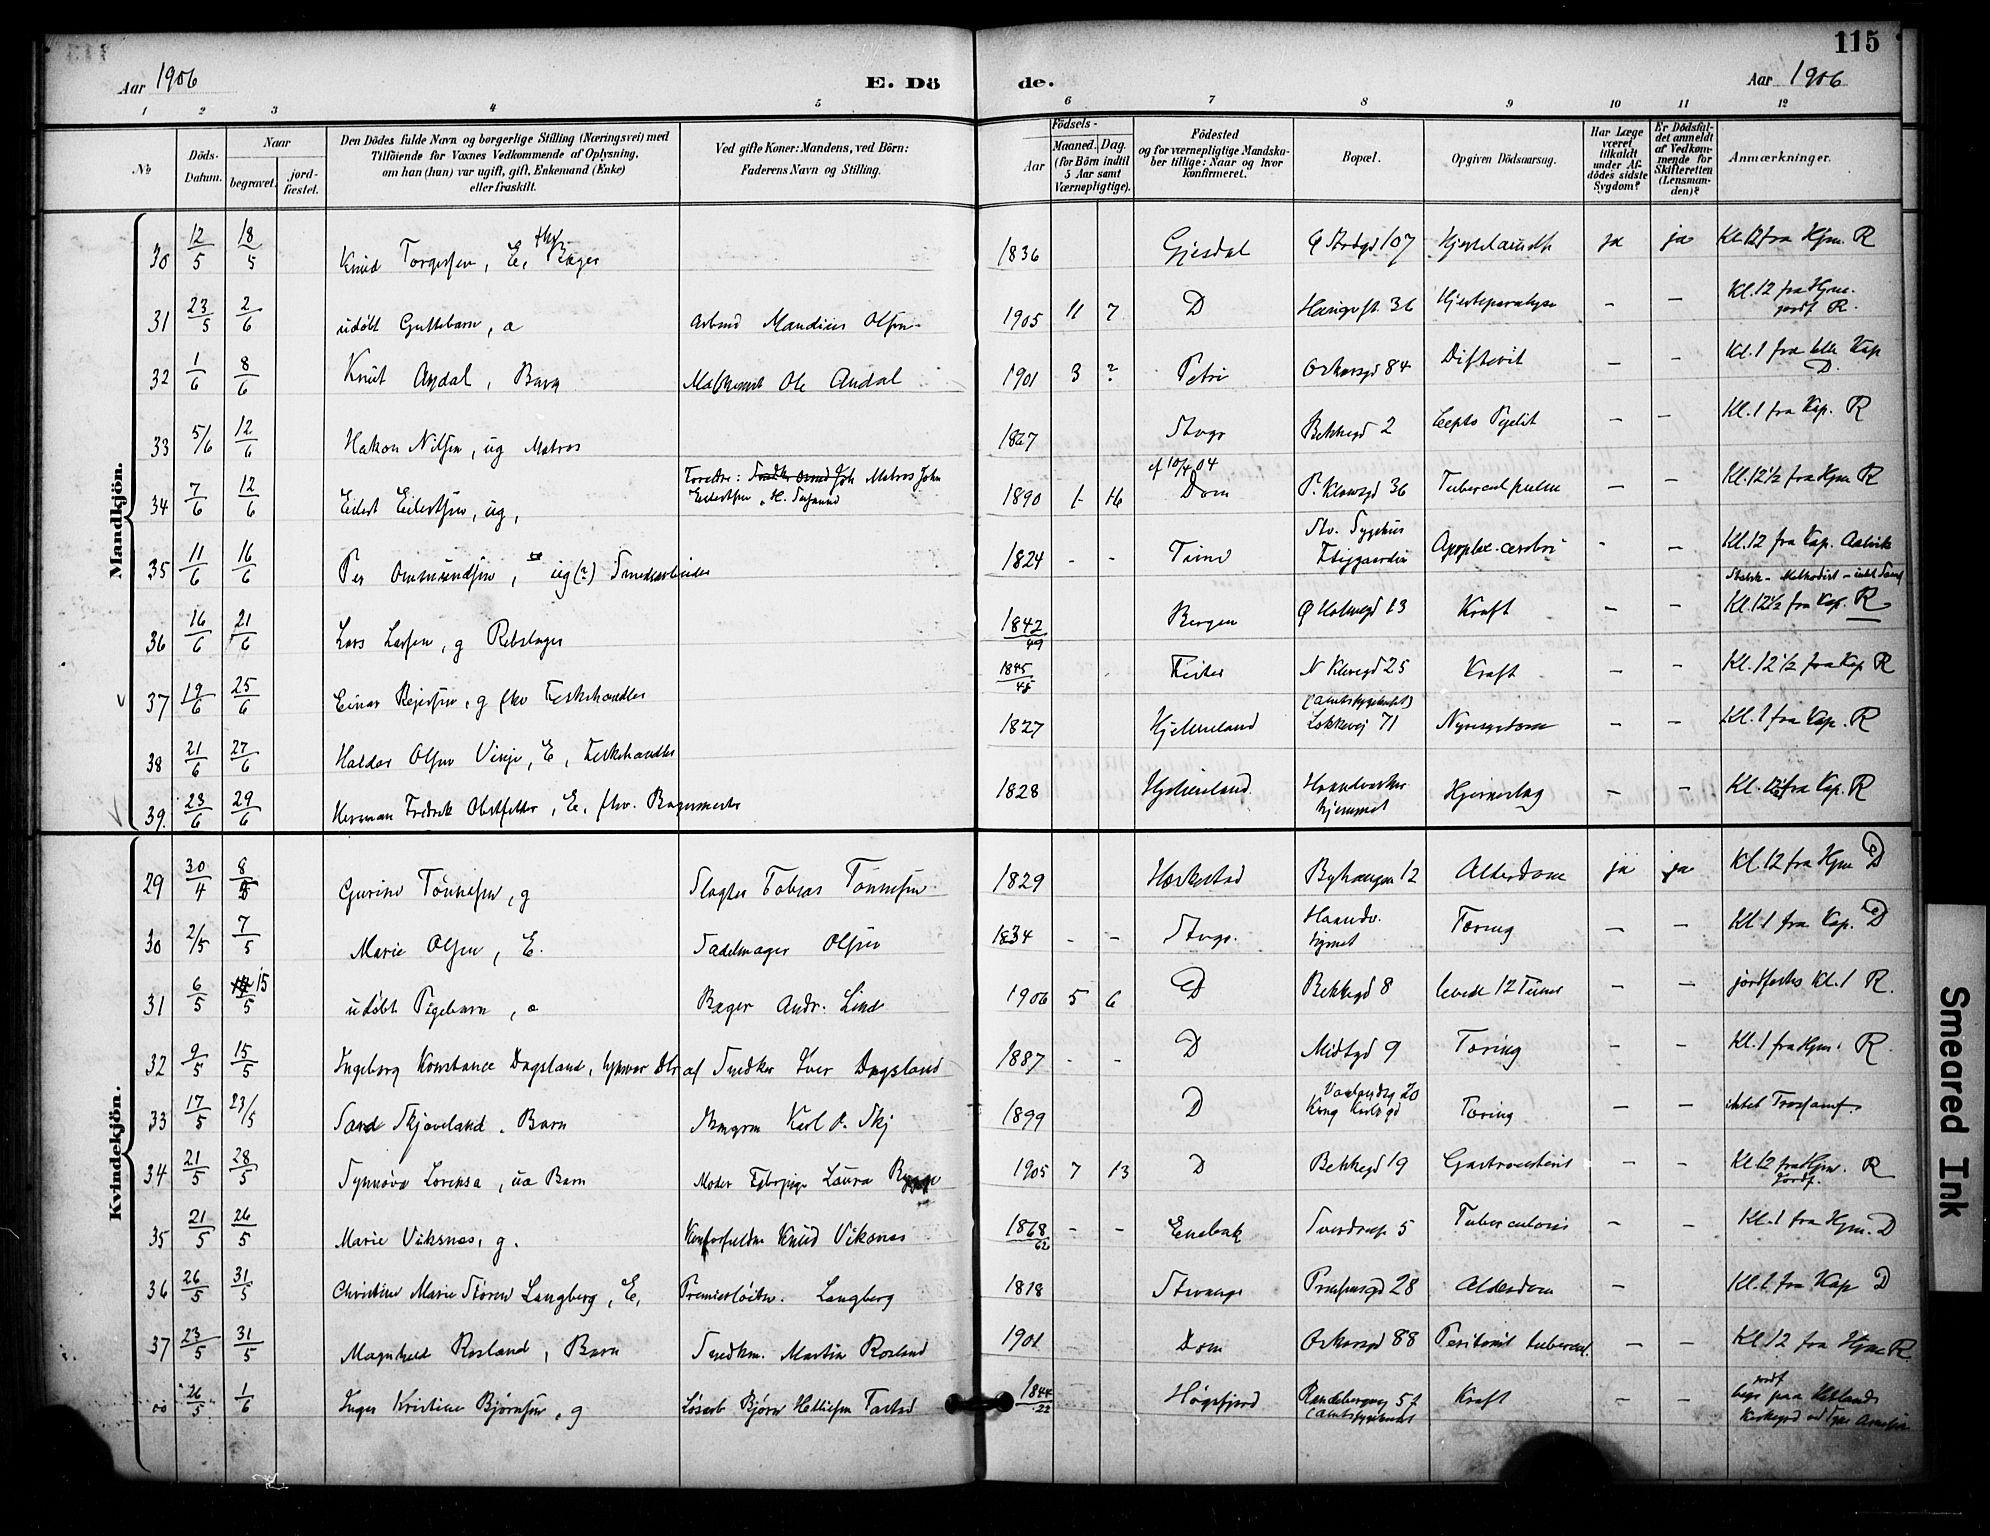 115
Aar 1906 E. Dö de. Aar 1906
1 2 3 4 5 6 7 8 9 10 11 12
№ Döds-Datum. Naar begravet. jord-fæstet. Den Dödes fulde Navn og borgerlige Stilling (Næringsvei) med Tilföiende for Voxnes Vedkommende af Oplysning, om han (hun) var ugift, gift, Enkemand (Enke) eller fraskilt. Ved gifte Koner: Mandens, ved Börn: Faderens Navn og Stilling. Aar Födsels- Maaned. Dag. (for Börn indtil 5 Aar samt Værnepligtige). Födested og for værnepligtige Mandskaber tillige: Naar og hvor konfirmeret. Bopæl. Opgiven Dödsaarsag. Har Læge været tilkaldt under Afdödes sidste Sygdom? Er Dödsfaldet anmeldt af Vedkommende for Skifteretten (Lensmanden)? Anmærkninger.
Mandkjön.
30 12/5 18/5 Knud Torgersen, E, fhv Bager 1836 Gjesdal Ø Strdgd 107 ja ja Kl 12 fra Hjm. R
31 23/5 2/6 udöbt Guttebarn, a Arbmd Olsen 1905 11 7 D 36 Hjerteparalyse — — Kl. 12 fra Hjm. jordf R.
32 1/6 8/6 Knut Aadal, Barn Ole Aadal 1901 3 ? Petri Oskarsgd 84 Difterit — — Kl. 1 fra Kap D.
33 5/6 12/6 Hakon Nilsen, ug Matros 1867 Stvgr Bekkegd 2 — — Kl. 1 fra Kap. R
34 7/6 12/6 Eilert Eilertsen, ug, Foreldre: Matros John Eilertsen 1890 1 16 cf 10/4 04 Dom P. Klowsgd 36 Tubercul pulm — — Kl. 12½ fra Hjm R
35 11/6 16/6 Per Ommundsen, ug (?) Smedarbeider 1824 - - Time Stv. Sygehus Apoplex. cerebri - — Kl. 12 fra Kap.
36 16/6 21/6 Lars Larsen, g Rebslager 1842/49 Bergen Ø Holmegd 13 Kræft — — Kl. 12½ fra Kap. R
37 19/6 25/6 Einar Rejersen, g fhv Fiskehandler 1845/45 Fister N Klevegd 25 Kræft — — Kl. 12½ fra Kap R
38 21/6 27/6 Haldor Olsen Viige, E, Fiskehandler 1827 Hjelmeland (Amtssygehuset) Løkkevej 71 Nyresygdom — — Kl. 1 fra Kap. R
39. 23/6 29/6 Herman Fredrik Obstfelder, E, fhv. Bagermester 1828 Hjelmeland Haandverker hjemmet Hjerneslag — — Kl. fra Kap. R
Kvindekjön.
29 30/4 8/5 Gurine Tönnesen, g Slagter Tobias Tönnesen 1829 Byhaugen 12 Alderdom ja ja Kl. 12 fra Hjm D
30 2/5 7/5 Marie Olsen, E. Sadelmager Olsen 1834 - - Stvgr. Haandv. hjmet Tæring — — Kl. 1 fra Kap. D
31 6/5 15/5 udöbt Pigebarn, a Bager Andr. Lind 1906 5 6 D Bekkegd 8 levede 12 Timer — — jordfæstes Kl. 1 R.
32 9/5 15/5 Ingeborg Konstance Dagsland, hjmvær Dtr af Snedker Iver Dagsland 1887 - - D Midtgd 9 Tæring — — Kl. 1 fra Hjm. R
33 17/5 23/5 Sara Skjæveland, Barn Karl O. Skj 1899 D 20 Kong Karls gd Tæring — — intet Trossamf.
34 21/5 28/5 Synnöva Lovisa, ua Barn Moder Fabrpige Laura 1905 7 13 D Bekkegd 19 Gastroenterit — — Kl 12 fra Hjm. Jordf. R
35 21/5 26/5 Marie Viksnæs, g. Knud Viksnæs 1868/62 - - Enebak Sverdrupsg 5 Tuberculosis — — Kl. 1 fra Hjm. D
36 26/5 31/5 Christine Marie Sören Langberg, E, Premierlöitn. Langberg 1818 Stvanger 28 Alderdom — Kl. 1 fra Kap D
37 23/5 31/5 Magnhild Rosland, Barn Snedkm. Martin Rosland 1901 Dom Oskarsgd 88 Peritonit tubercul. — — Kl. 12 fra Hjm R.
26/5 1/6 Inger Kristine Bjørnsen, g Løsarb Bjørn 1844/22 Høgsfjord Randebergvej 57 (Amtssygehuset Kræft — — jordf begr paa Hetlands Kirkegrd
Smeared Ink